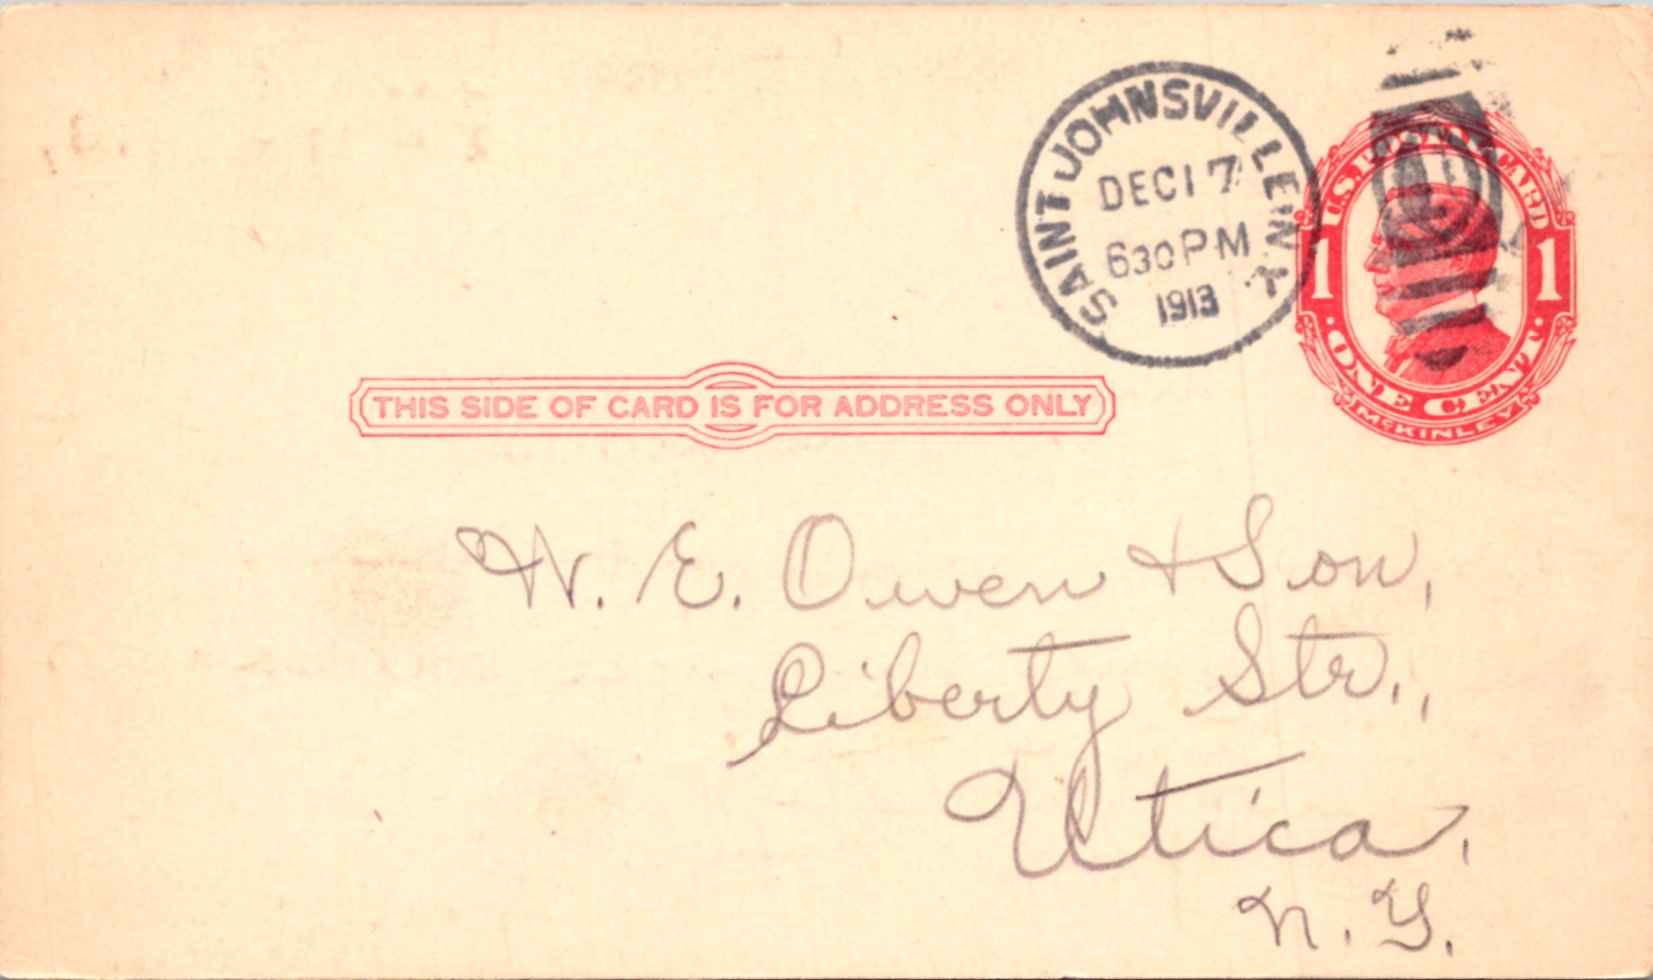 SAINT JOHNSVILLE N.Y.
DEC 17
630 PM
1913
U.S. POSTAL CARD
1 1
· ONE CENT ·
McKINLEY
THIS SIDE OF CARD IS FOR ADDRESS ONLY
W. E. Owen & Son,
Liberty Str.,
Utica,
N. Y.